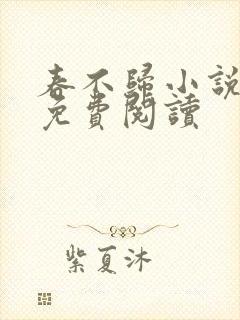 春不歸小說
免費閱讀
紫夏沐